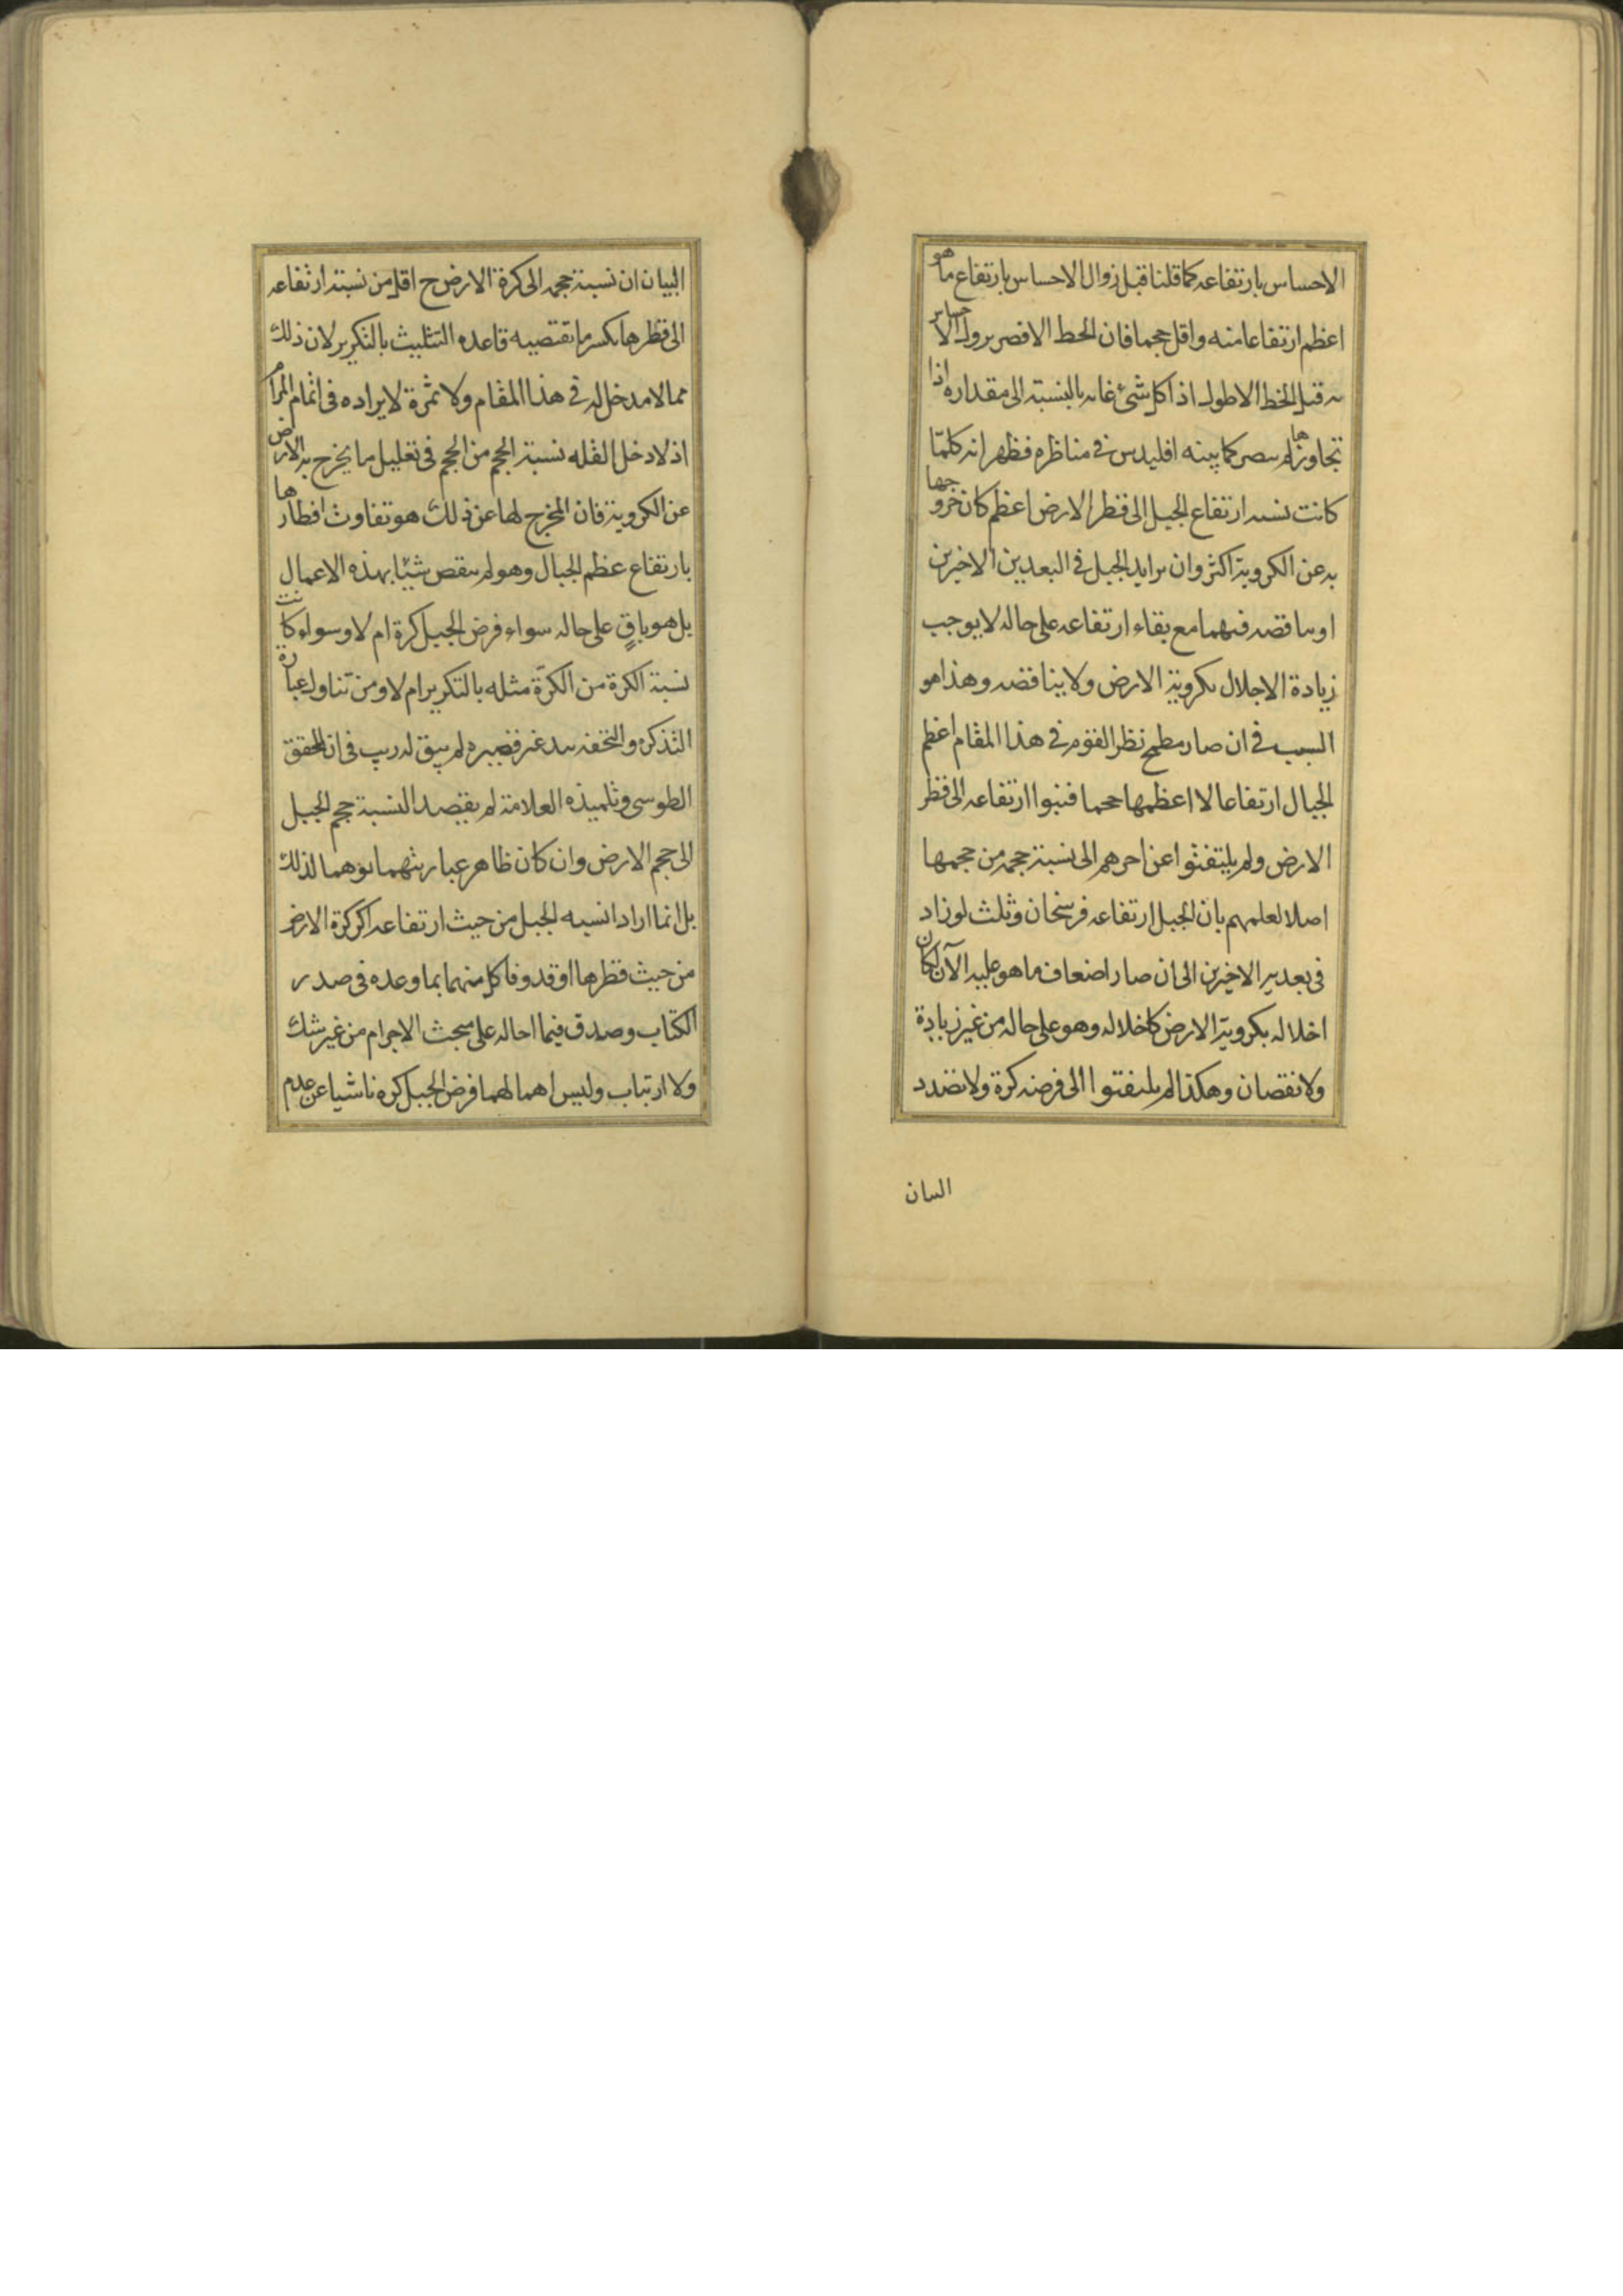 الاحساس بارتفاعه كما قلنا قبل زوال الاحساس بارتفاع ما هو
اعظم ارتفاعا منه واقل حجما فان الخط الاقصر يزول الاحساس
به قبل الخط الاطول اذ لكل شئ غاية بالنسبة الى مقداره اذا
تجاوزها لم يبصر كما بينه اقليدس في مناظره فظهر انه كلما
كانت نسبة ارتفاع الجبل الى قطر الارض اعظم كان خروجها
به عن الكروية اكثر وان تزايد الجبل في البعدين الاخيرين
او تناقصه فيهما مع بقاء ارتفاعه على حاله لا يوجب
زيادة الاخلال بكروية الارض ولا يناقصه وهذا هو
السبب في ان صار مطمح نظر القوم في هذا المقام اعظم
الجبال ارتفاعا لا اعظمها حجما فنسبوا ارتفاعه الى قطر
الارض ولم يلتفتوا عن اخرهم الى نسبة حجمه من حجمها
اصلا لعلمهم بان الجبل ارتفاعه فرسخان وثلث لو زاد
في بعديه الاخيرين الى ان صار اضعاف ما هو عليه الآن لكان
اخلاله بكروية الارض كاخلاله وهو على حاله من غير زيادة
ولا نقصان وهكذا لم يلتفتوا الى فرضه كرة ولا تصدد
البيان
البيان ان نسبة حجمه الى كرة الارض ح اقل من نسبة ارتفاعه
الى قطرها بكسر ما تقتضيه قاعدة التثليث بالتكرير لان ذلك
مما لا مدخل له في هذا المقام ولا ثمرة لايراده في اتمام المرام
اذ لا دخل لقلة نسبة الحجم من الحجم في تعليل ما يخرج به الارض
عن الكروية فان المخرج لها عن ذلك هو تفاوت اقطارها
بارتفاع عظم الجبال وهو لم ينقص شيئا بهذه الاعمال
بل هو باقٍ على حاله سواء فرض الجبل كرة ام لا وسواء كانت
نسبة الكرة من الكرة مثله بالتكرير ام لا ومن تناول عبارة
التذكرة والتحفة بيد غير قصيرة لم يبق له ريب في ان المحقق
الطوسي وتلميذه العلامة لم يقصد النسبة حجم الجبل
الى حجم الارض وان كان ظاهر عبارتهما توهما لذلك
بل انما ارادا نسبة الجبل من حيث ارتفاعه الى كرة الارض
من حيث قطرها او قد وفا كل منهما بما وعده في صدر
الكتاب وصدق فيما احاله على مبحث الاجرام من غير شك
ولا ارتياب وليس اهمالهما فرض الجبل كرة ناشيا عن عدم